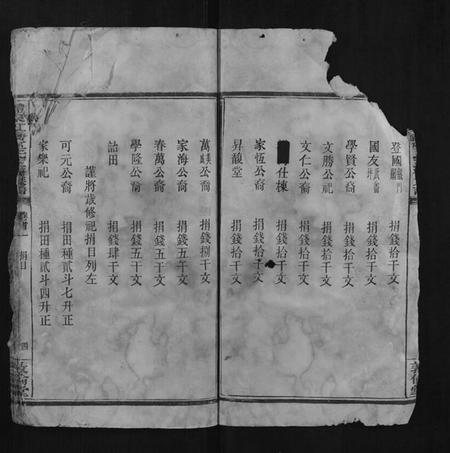 登國 捐錢拾千文
國友 捐錢拾千文
學賢公裔 捐錢拾千文
文勝公祀 捐錢拾千文
文仁公裔 捐錢拾千文
仕棟 捐錢拾千文
家恆公裔 捐錢拾千文
昇馥堂
萬公裔 捐錢捌千文
家海公裔 捐錢五千文
春萬公裔 捐錢五千文
學隆公裔 捐錢五千文
詁田 捐錢肆千文
謹將歲修祀捐目列左
可元公裔 捐田種貳斗七升正
家樂祀 捐田種貳斗四升正
捐目
四